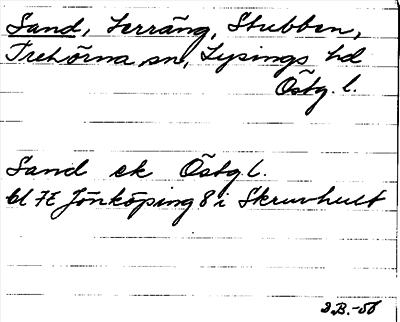 Sand, terräng, Stubben,
Trehörna sn, Lysings hd
Östg. l.
Sand ek Östg l.
bl 7E Jönköping 8 i Skruvhult
2B.-56